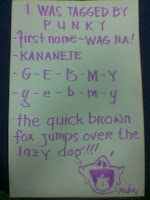 I WAS TAGGED BY
PUNKY
first name-WAG NA!
-KANANETE
-G-E-B-M-Y
-g-e-b-m-y
the quick brown
fox jumps over the
lazy dog!!!